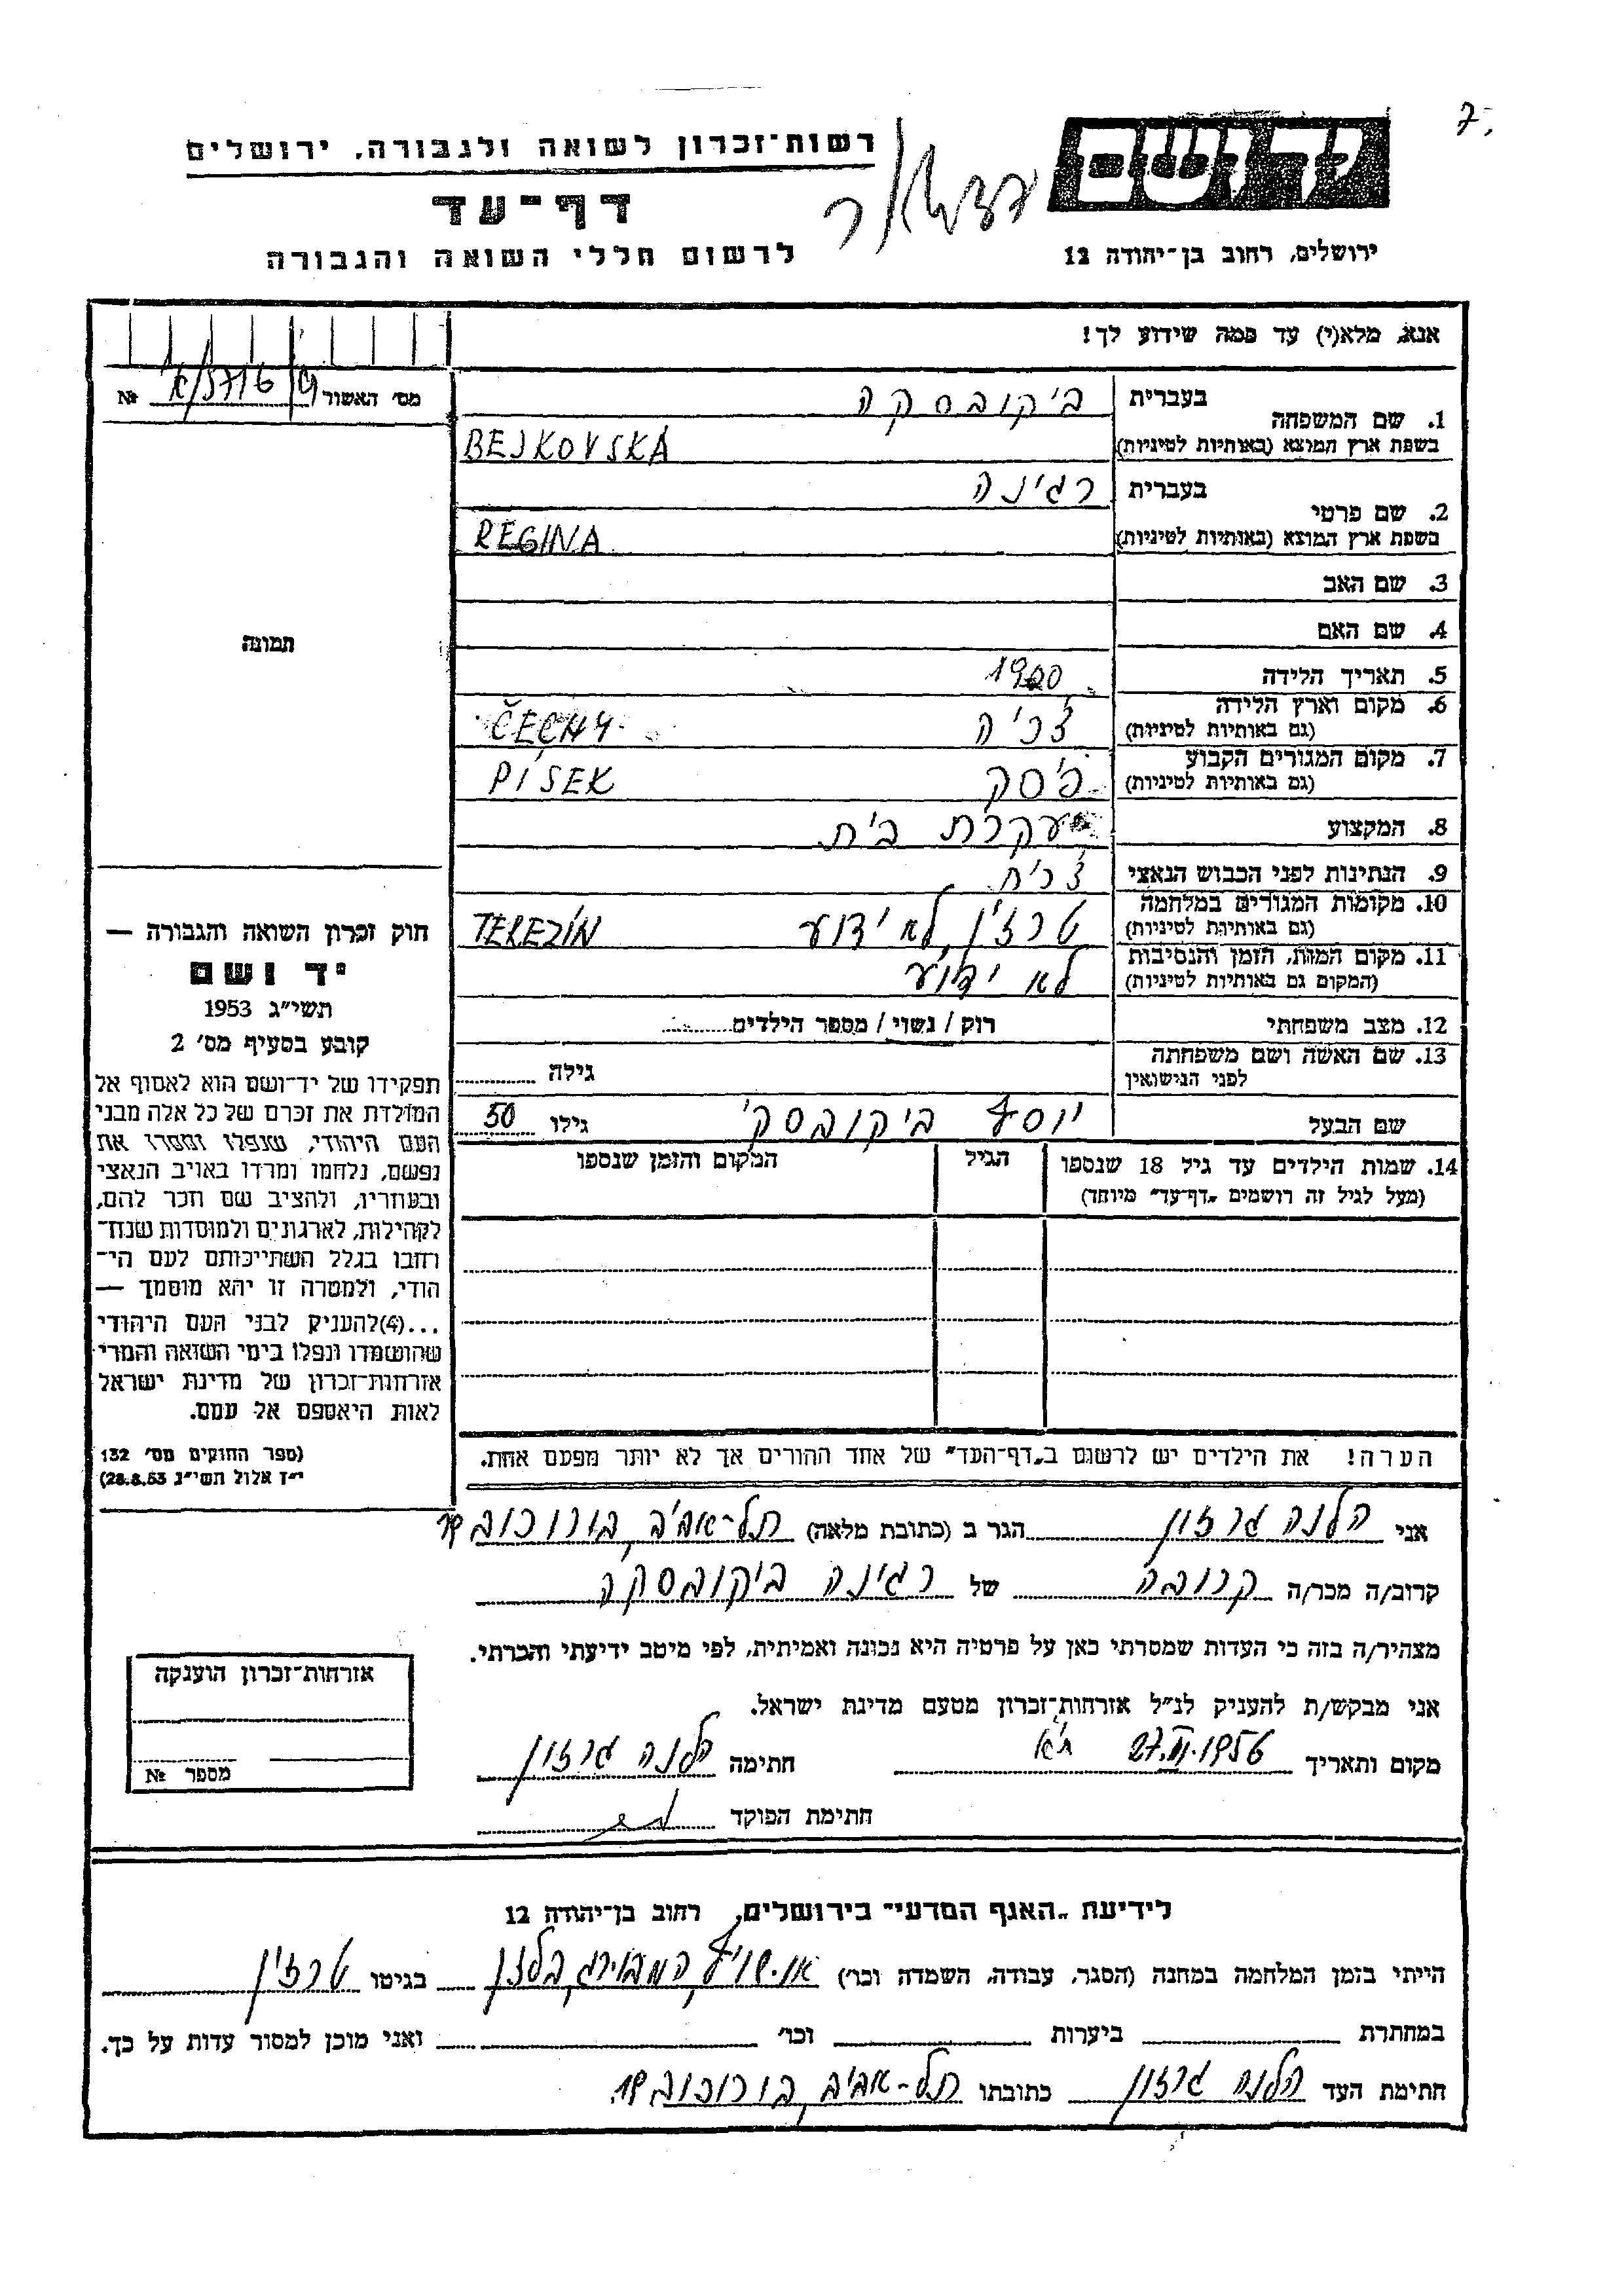 7.
ידושם
רשות־זכרון לשואה ולגבורה, ירושלים
דף־עד
לרשום חללי השואה והגבורה
ירושלים, רחוב בן־יהודה 12
אנא, מלא(י) עד כמה שידוע לך!
מס' האשור №
1. שם המשפחה בעברית ביקובסקה
בשפת ארץ המוצא (באותיות לטיניות) BEJKOVSKÁ
2. שם פרטי בעברית רגינה
בשפת ארץ המוצא (באותיות לטיניות) REGINA
3. שם האב
4. שם האם
5. תאריך הלידה 1900
6. מקום וארץ הלידה (גם באותיות לטיניות) צ'כיה ČECHY
7. מקום המגורים הקבוע (גם באותיות לטיניות) פיסק PÍSEK
8. המקצוע עקרת בית
9. הנתינות לפני הכבוש הנאצי צ'כית
10. מקומות המגורים במלחמה (גם באותיות לטיניות) טרזין, לא ידוע TEREZÍN
11. מקום המות, הזמן והנסיבות (המקום גם באותיות לטיניות) לא ידוע
12. מצב משפחתי רוק / נשוי / מספר הילדים
13. שם האשה ושם משפחתה לפני הנישואין גילה
שם הבעל יוסף ביקובסקי גילו 50
14. שמות הילדים עד גיל 18 שנספו הגיל המקום והזמן שנספו
(מעל לגיל זה רושמים „דף־עד" מיוחד)
הערה! את הילדים יש לרשום ב„דף־העד" של אחד ההורים אך לא יותר מפעם אחת.
תמונה
חוק זכרון השואה והגבורה —
יד ושם
תשי"ג 1953
קובע בסעיף מס' 2
תפקידו של יד־ושם הוא לאסוף אל
המולדת את זכרם של כל אלה מבני
העם היהודי, שנפלו ומסרו את
נפשם, נלחמו ומרדו באויב הנאצי
ובעוזריו, ולהציב שם וזכר להם,
לקהילות, לארגונים ולמוסדות שנח־
רבו בגלל השתייכותם לעם הי־
הודי, ולמטרה זו יהא מוסמך —
...(4)להעניק לבני העם היהודי
שהושמדו ונפלו בימי השואה והמרי
אזרחות־זכרון של מדינת ישראל
לאות היאספם אל עמם.
(ספר החוקים מס' 132
י"ז אלול תשי"ג 28.8.53)
אני הלנה גרזון הגר ב (כתובת מלאה) תל-אביב, בורוכוב 19
קרוב/ה מכר/ה קרובה של רגינה ביקובסקה
מצהיר/ה בזה כי העדות שמסרתי כאן על פרטיה היא נכונה ואמיתית, לפי מיטב ידיעתי והכרתי.
אני מבקש/ת להעניק לנ"ל אזרחות־זכרון מטעם מדינת ישראל.
מקום ותאריך ת"א חתימה הלנה גרזון
חתימת הפוקד
אזרחות־זכרון הוענקה
מספר №
לידיעת „האגף המדעי" בירושלים, רחוב בן־יהודה 12
הייתי בזמן המלחמה במחנה (הסגר, עבודה, השמדה וכר') בגיטו טרזין
במחתרת ביערות וכר' ואני מוכן למסור עדות על כך.
חתימת העד הלנה גרזון כתובתו תל-אביב, בורוכוב 19.